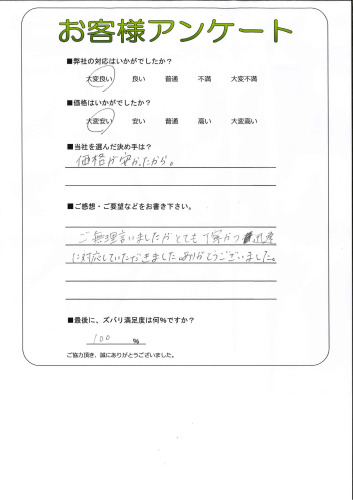 お客様アンケート
■弊社の対応はいかがでしたか？
大変良い 良い 普通 不満 大変不満
■価格はいかがでしたか？
大変安い 安い 普通 高い 大変高い
■当社を選んだ決め手は？
価格が安かったから。
■ご感想・ご要望などをお書き下さい。
ご無理言いましたがとても丁寧かつ迅速
に対応していただきました。ありがとうございました。
■最後に、ズバリ満足度は何%ですか？
100 %
ご協力頂き、誠にありがとうございました。